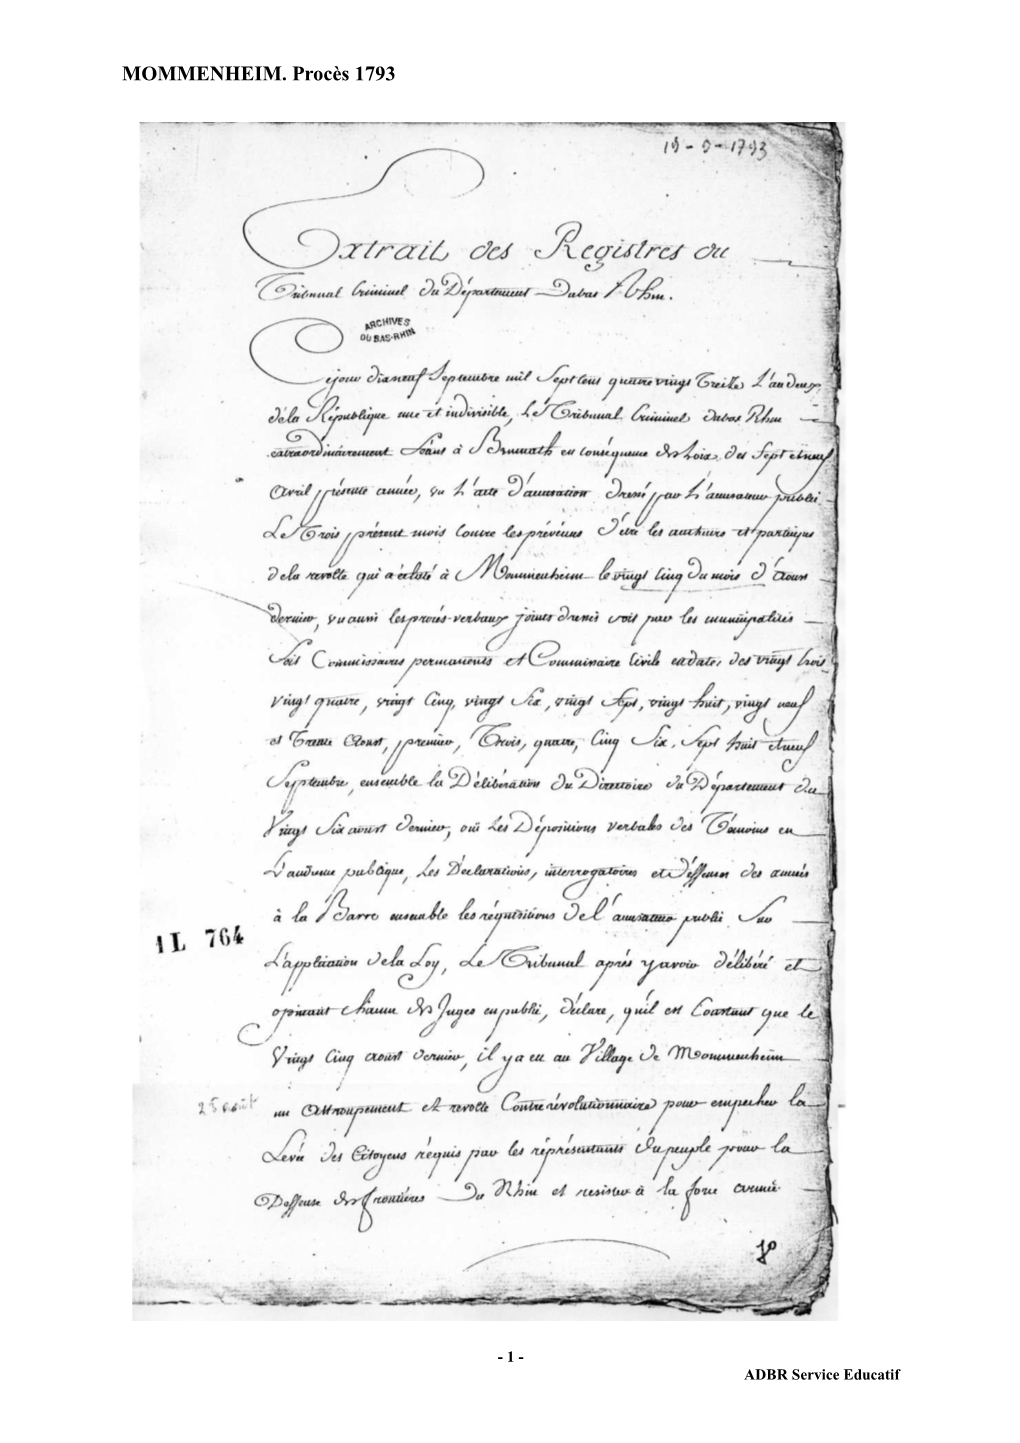 MOMMENHEIM. Procès 1793
19-9-1793
Extrait des Registres du
Tribunal Criminel du Département Dubas Rhin.
ARCHIVES
DU BAS-RHIN
Cejour dixneuf Septembre mil Sept Cens quatre vingt Treize L'an deux
dela République une et indivisible, Le Tribunal Criminel dubas Rhin
extraordinairement Séant à Brumath en conséquence des Loix des Sept et neuf
Avril présente année, vu L'acte D'accusation dressé par L'accusateur public
Le Trois présent mois Contre les prévenus D'être les autheurs et partiques
dela revolte qui a éclaté à Mommenheim le vingt Cinq Du mois D'Aoust
Dernier, vu aussi les procés-verbaux joints dressés soit par les municipalités
Soit Commissaires permanents et Commissaire Civile en date des vingt trois
vingt quatre, vingt Cinq, vingt Six, vingt Sept, vingt huit, vingt neuf
et Trente Aoust, premier, Trois, quatre, Cinq Six, Sept huit et neuf
Septembre, ensemble la Délibération Du Directoire du Département du
Vingt Six aoust Dernier, oui Les Dépositions verbales des Témoins en
L'audience publique, Les Déclarations, interrogatoires et Déffenses des accusés
à la Barre ensemble les réquisitions de l'accusateur public Sur
L'application dela Loy, Le Tribunal après y avoir délibéré et
opinant Chacun des Juges en public, déclare, qu'il est Constant que le
Vingt Cinq Aoust dernier, il y a eu au Village de Mommenheim
un Attroupement et revolte Contrerévolutionnaire pour empecher la
Levée des Citoyens réquis par les réprésentants du peuple pour la
Deffense des frontières du Rhin et resister à la force armée
1 L 764
25 août
- 1 -
ADBR Service Educatif